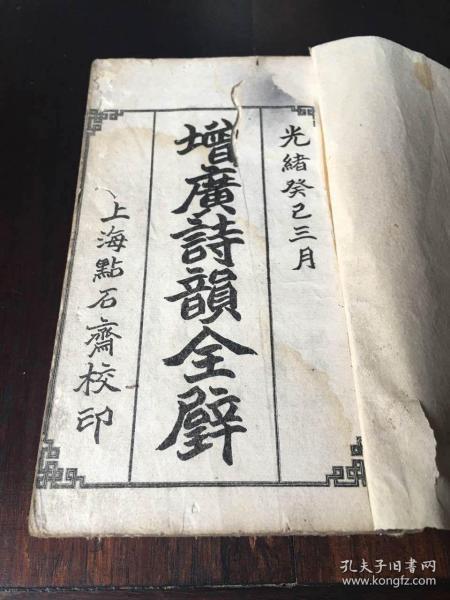 光緒癸巳三月
增廣詩韻全璧
上海點石齋校印
孔夫子旧书网
www.kongfz.com